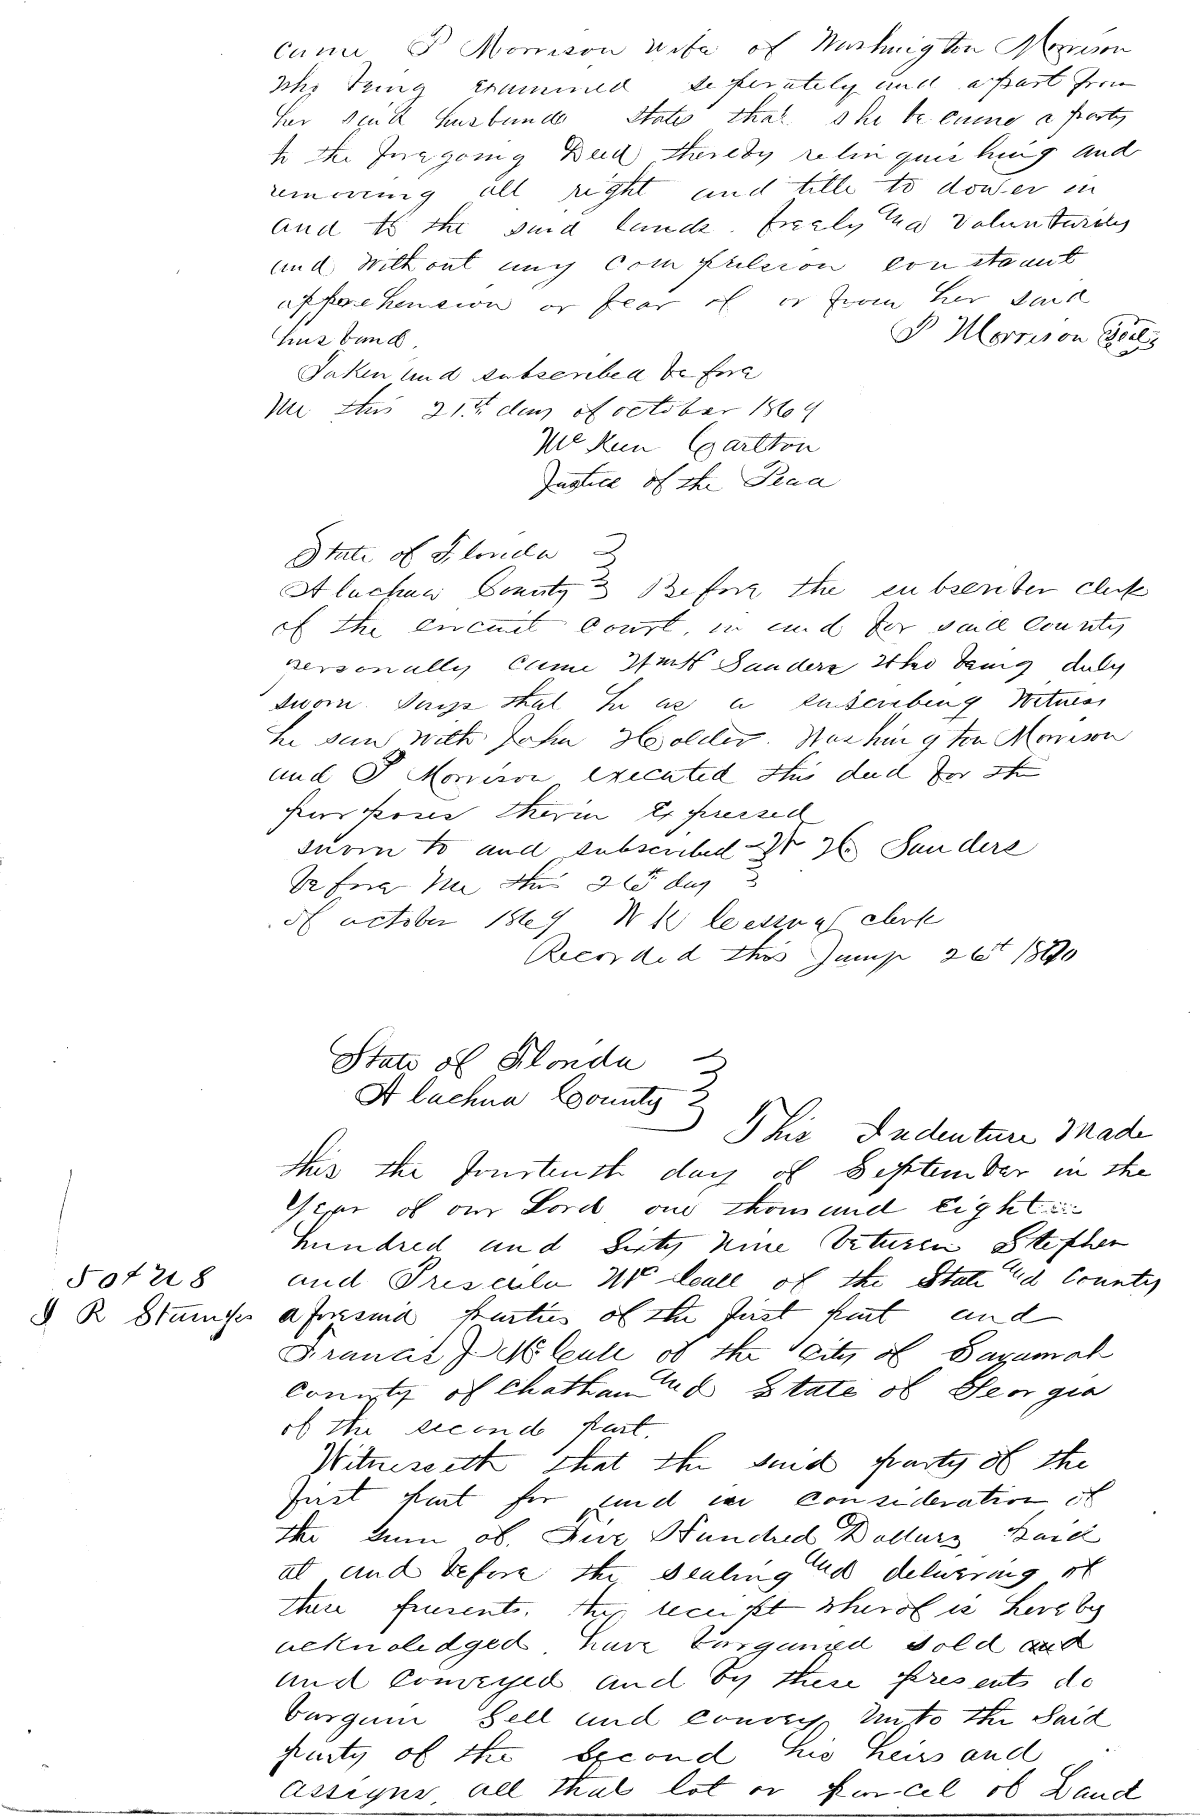 came P Morrison wife of Washington Morrison
who being examined seperately and apart from
her said husband States that she became a party
to the foregoing Deed, thereby relinquishing and
removing all right and title to dower in
and to the said lands. freely and voluntarily
and without any compulsion constraint
apprehension or fear of or from her said
husband. P Morrison Seal
Taken and subscribed before
Me this 21st day of october 1869
Carlton
Justice of the Peace
State of Florida
Alachua County Before the subscriber clerk
of the circuit court, in and for said County
personally came Sanders who being duly
sworn. says that he as a suscribing witness
he saw with John Holder. Washington Morrison
and P Morrison executed this deed for the
purposes therin Expressed
sworn to and subscribed W H Sanders
before Me this 26th day
of october 1869 W K Cessna clerk
Recorded this 26st 1870
State of Florida
Alachua County
This Indenture Made
this the fourtenth day of September in the
Year of our Lord one thousand Eight
hundred and Sixty Nine between Stephen
and Prescila McCall of the State and County
I R Stamps
aforesaid parties of the first part and
Francis J McCall of the City of Savannah
County of Chatham and State of Georgia
of the second part.
Witnesseth that the said party of the
first part for and in consideration of
the sum of. Five Hundred Dollars paid
at and before the sealing and delivering of
these presents. the receipt wherof is hereby
acknoledged. have bargained sold and
and conveyed and by these presents do
bargain Sell and convey unto the Said
party of the second his heirs and
assigns, all that lot or parcel of Land